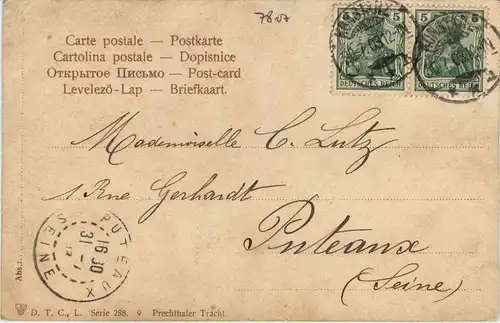 78 07
Carte postale — Postkarte
Cartolina postale — Dopisnice
Открытое Письмо — Post-card
Levelező-Lap — Briefkaart.
5 5
DEUTSCHES REICH DEUTSCHES REICH
Mademoiselle C. Lutz
1 Rue Gerhardt
Puteaux
(Seine)
PUTEAUX
16 30
31 - 7
SEINE
Abs.:
D. T. C., L. Serie 288. 9 Prechthaler Tracht.